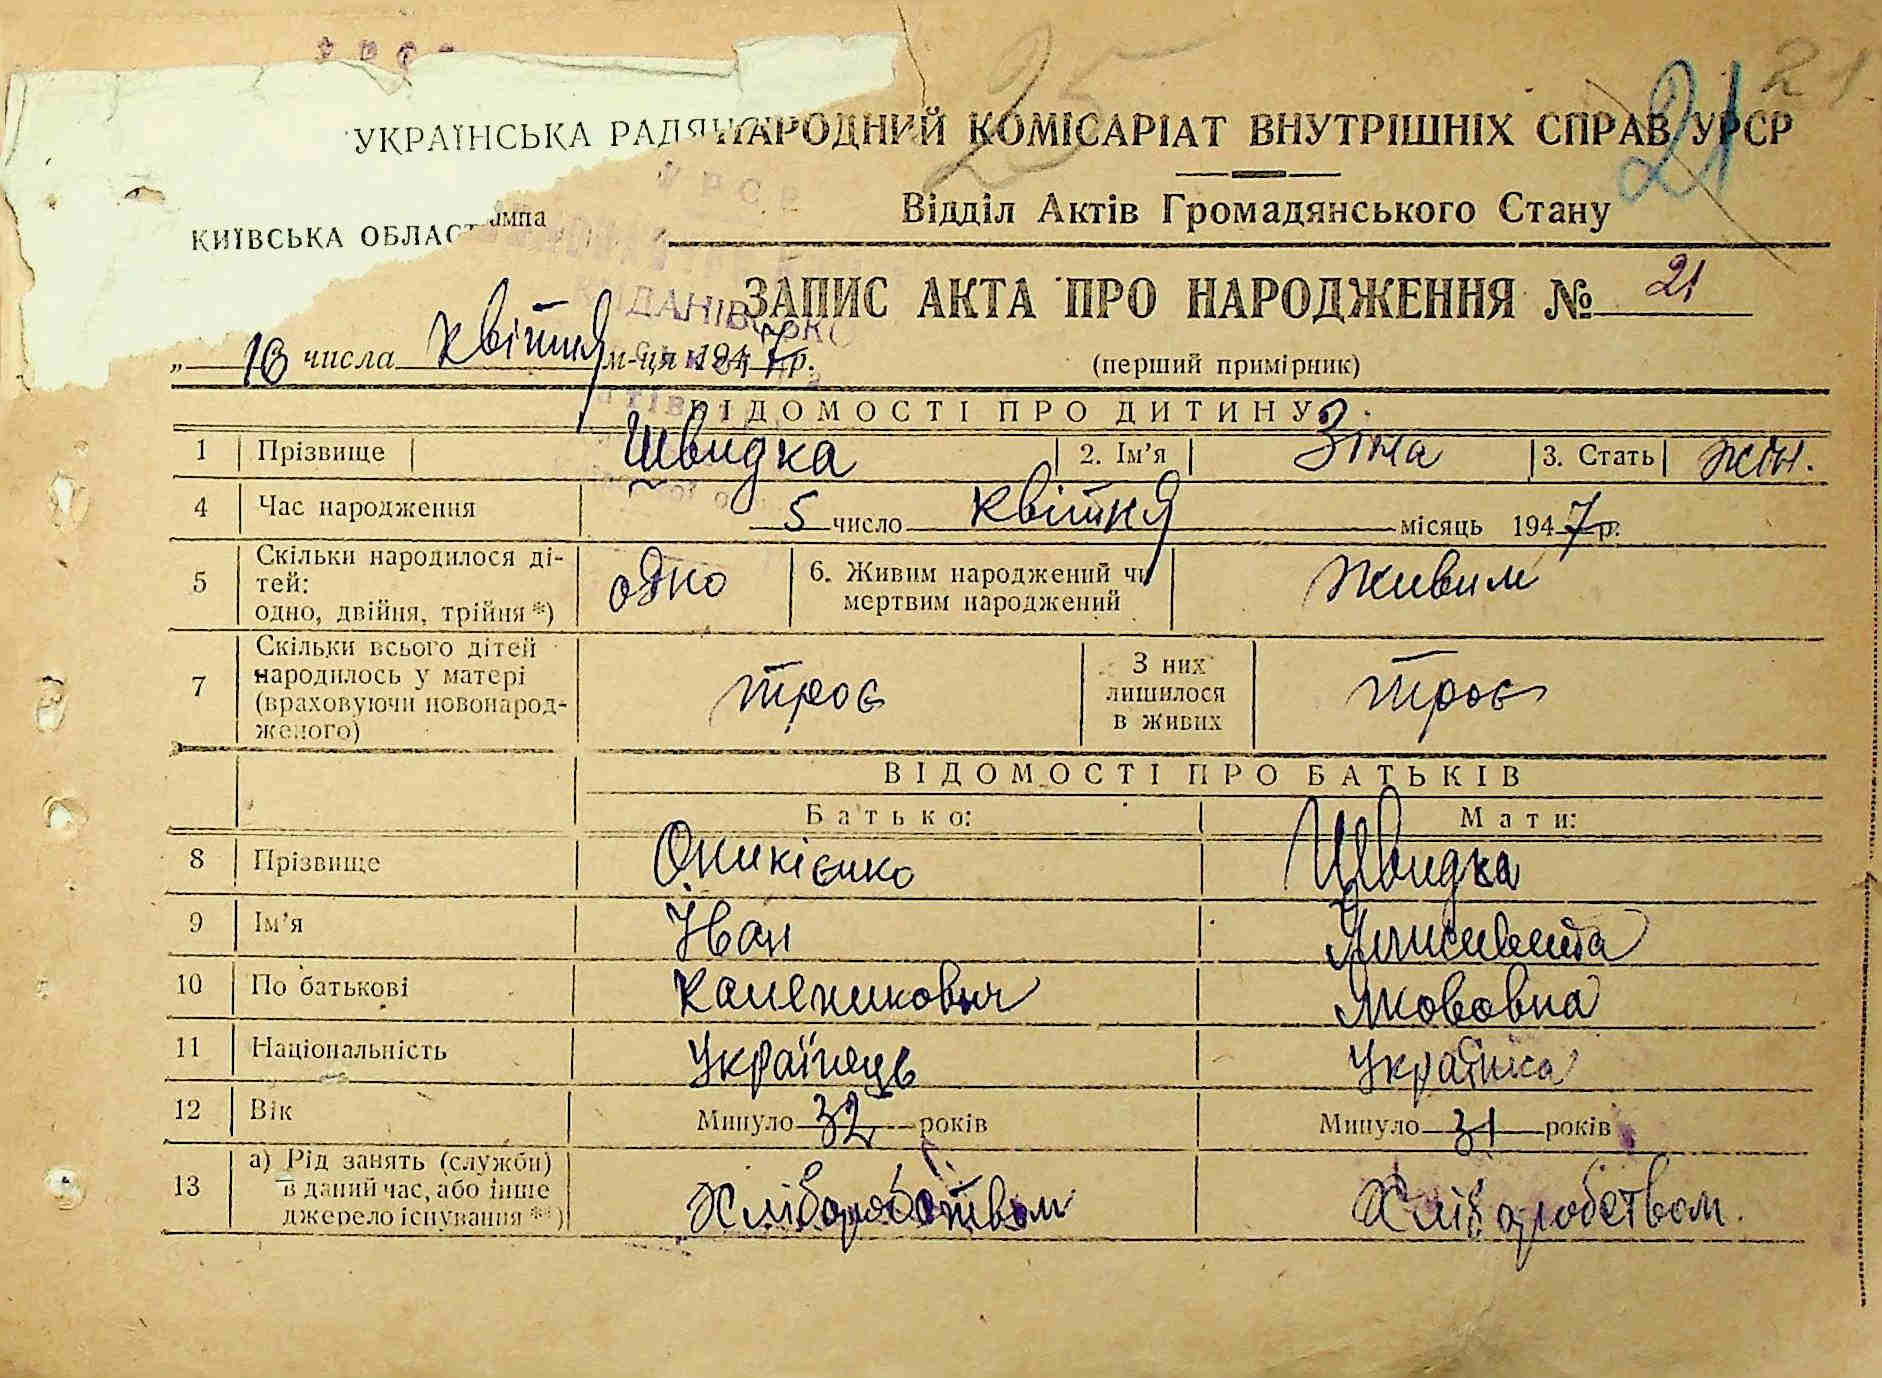 25
21
21
УКРАЇНСЬКА НАРОДНИЙ КОМІСАРІАТ ВНУТРІШНІХ СПРАВ УРСР
УРСР
Відділ Актів Громадянського Стану
КИЇВСЬКА
ЗАПИС АКТА ПРО НАРОДЖЕННЯ № 21
„ 13 числа квітня м-ця 1947 р. (перший примірник)
ВІДОМОСТІ ПРО ДИТИНУ
1 Прізвище Швидка 2. Ім'я Зіна 3. Стать жін.
4 Час народження 5 число квітня місяць 1947 р.
5 Скільки народилося дітей: одно, двійня, трійня *) одно 6. Живим народжений чи мертвим народжений живим
7 Скільки всього дітей народилось у матері (враховуючи новонародженого) троє З них лишилося в живих троє
ВІДОМОСТІ ПРО БАТЬКІВ
Батько: Мати:
8 Прізвище Оникієнко Швидка
9 Ім'я Іван Єлисивета
10 По батькові Каленикович Якововна
11 Національність Українець Українка
12 Вік Минуло 32 років Минуло 31 років
13 а) Рід занять (служби) в даний час, або інше джерело існування **) Хліборобством Хліборобством.